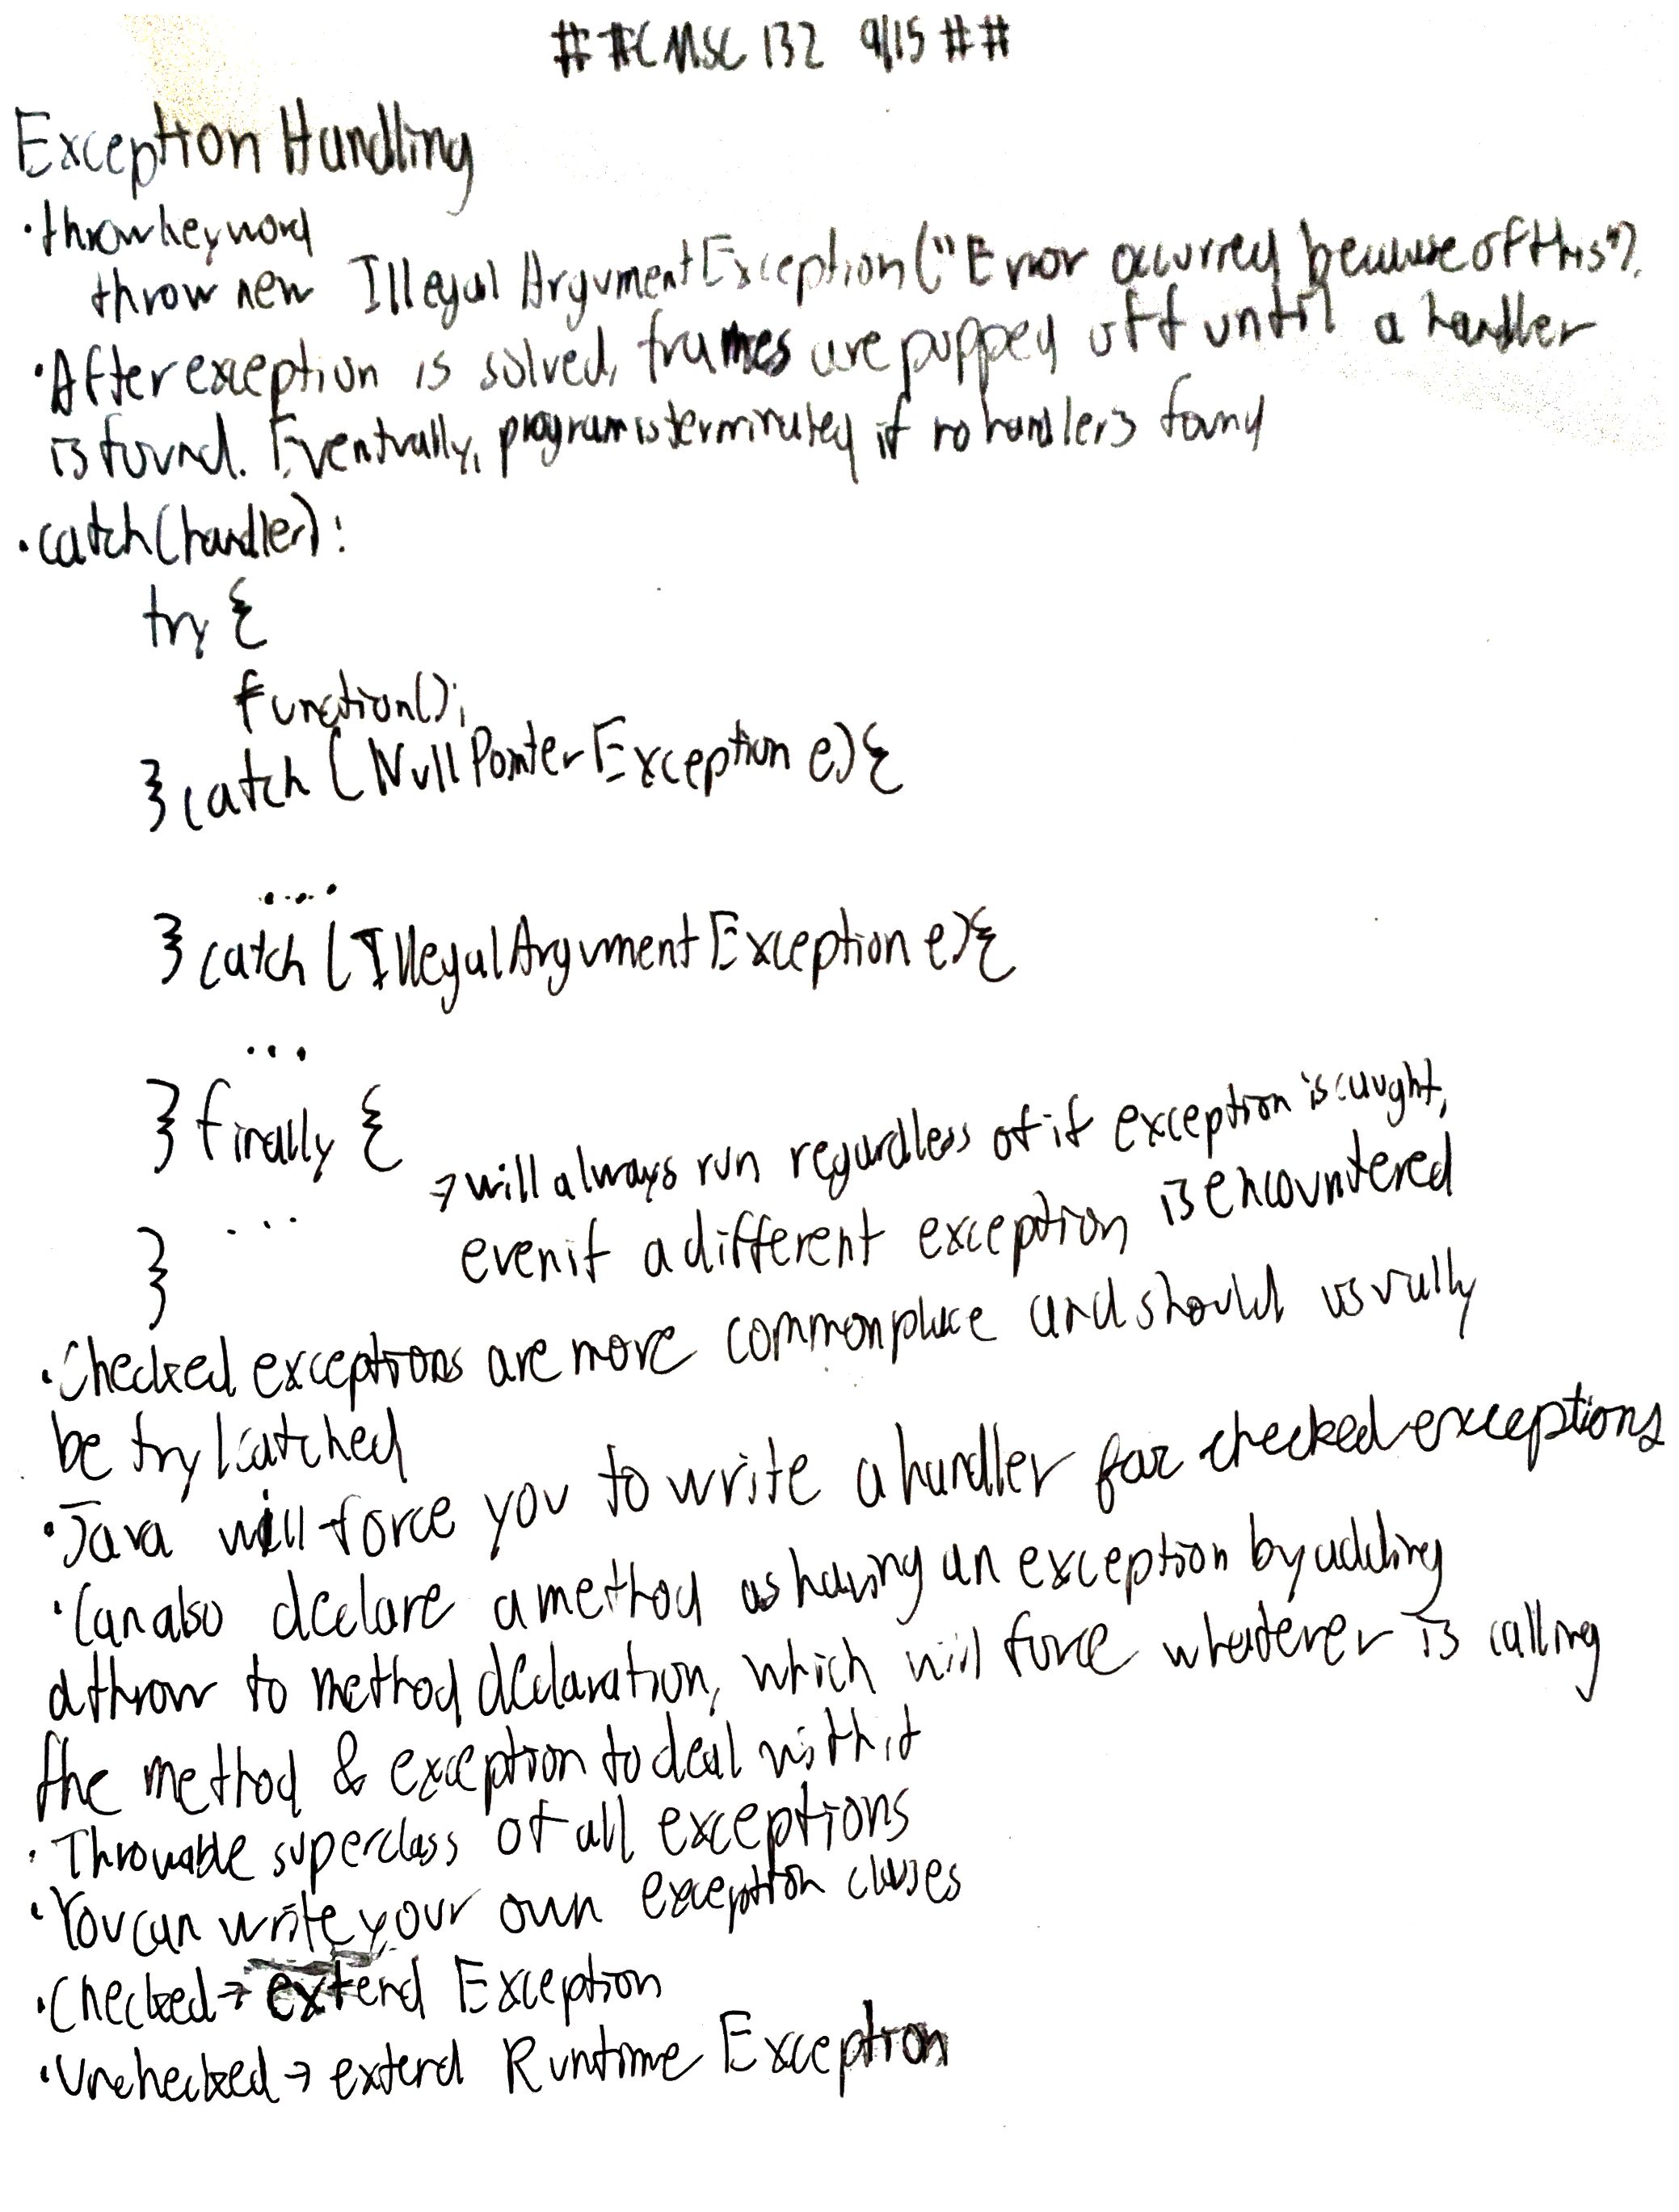 ##CMSC 132 9/15##
Exception Handling
·throw keyword
throw new IllegalArgumentException("Error ocurred because of this");
·After exception is solved, frames are popped off until a handler
is found. Eventually, program is terminated if no handler is found
·catch(handler):
try {
function();
} catch (NullPointerException e){
....
} catch (IllegalArgumentException e){
...
} finally {
→will always run regardless of if exception is caught,
... even if a different exception is encountered
}
·Checked exceptions are more commonplace and should usually
be try/catched
·Java will force you to write a handler for checked exceptions
·Can also declare a method as having an exception by adding
a throw to method declaration, which will force whatever is calling
the method & exception to deal with it
·Throwable superclass of all exceptions
·You can write your own exception classes
·Checked→ extend Exception
·Unchecked→ extend Runtime Exception